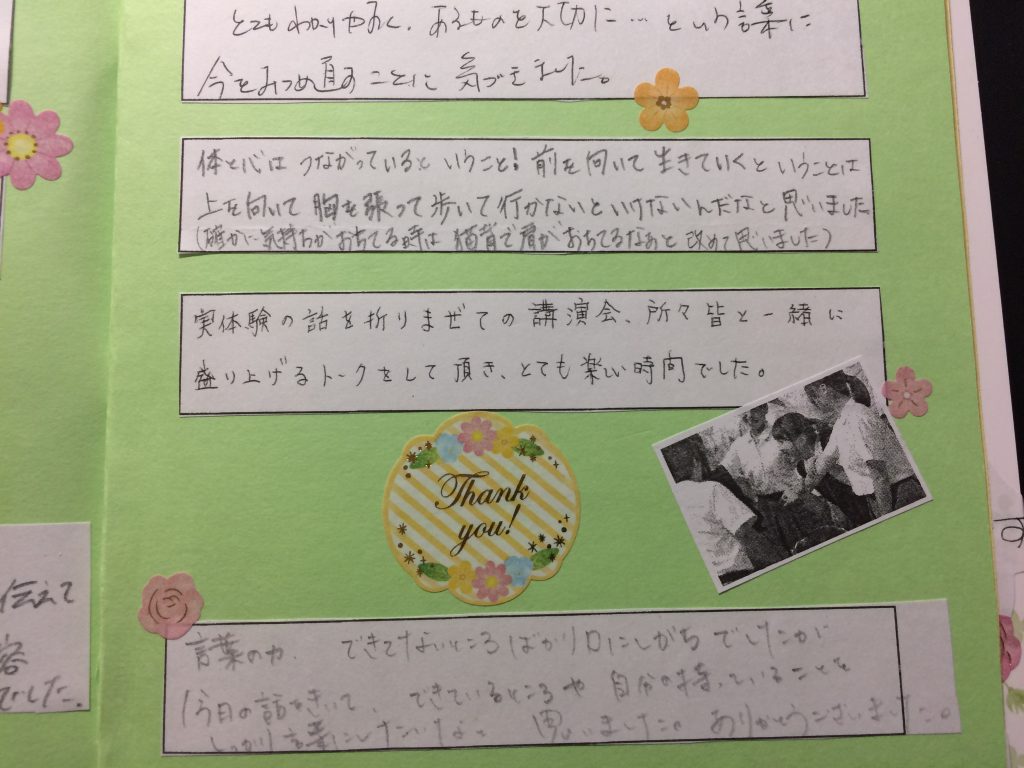 とてもわかりやすく、あるものを大切に…という言葉に
今をみつめ直すことに気づきました。
体と心はつながっているということ!前を向いて生きていくということは
上を向いて胸を張って歩いて行かないといけないんだなと思いました
(確かに気持ちがおちてる時は猫背で肩がおちてるなぁと改めて思いました)
実体験の話を折りまぜての講演会、所々皆と一緒に
盛り上げるトークをして頂き、とても楽しい時間でした。
Thank
you!
伝えて
でした。
言葉の力. できてないところばかり口にしがちでしたが
今日の話をきいて、できているところや自分の持っていることを
しっかり言葉にしたいなと思いました。ありがとうございました。
す